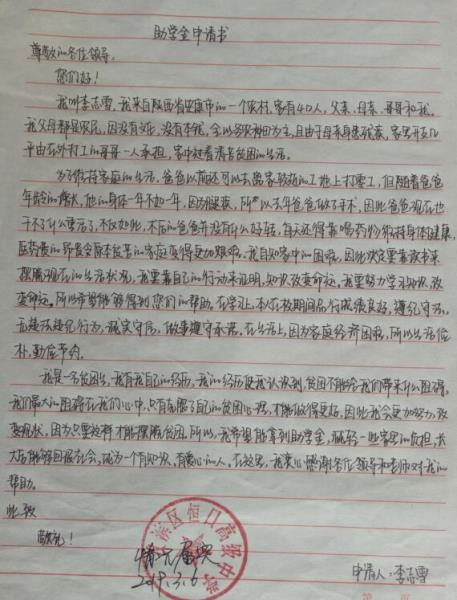 助学金申请书
尊敬的各位领导:
您们好!
我叫李志雪,我来自陕西省安康市的一个农村,家有4口人,父亲、母亲、哥哥和我。
我父母都是农民,因没有文化,没有本领,全以务农种田为主,且由于母亲身患残疾,家务开支几
乎由在外打工的哥哥一人承担,家中过着清苦贫困的生活。
为了维持家庭的生活,爸爸以前还可以去离家较近的工地上打零工,但随着爸爸
年龄的增大,他的身体一年不如一年,因为健康,所以去年爸爸做了手术,因此爸爸现在也
干不了什么重活了,不仅如此,术后的爸爸并没有什么好转,每天还得靠喝药物维持身体健康,
医药费的昂贵令原本贫苦的家庭变得更加艰难。我自知家中的困难,因此决定要靠读书来
摆脱现在的生活状况,我要靠自己的行动来证明,知识改变命运,我要努力学习知识,改
变命运。所以希望能够得到您们的帮助。在学习上,本人在校期间品行成绩良好,遵纪守法,
无违法违纪行为,诚实守信,做事遵守承诺。在生活上,因为家庭经济困难,所以生活俭
朴,勤俭节约。
我是一名贫困生,我有我自己的经历,我的经历使我认识到,贫困不能给我们带来什么阻碍,
我们最大的阻碍在我们的心中,只有克服了自己的贫困心理,才能做得更好,因此我会更加努力,改
变现状,因为只有这样才能摆脱贫困。所以,我希望能拿到助学金,减轻一些家里的负担,长
大后能够回报社会,成为一个有知识,有爱心的人。在这里,我衷心感谢各位领导和老师对我的
帮助。
此致
敬礼!
滨区恒口高级中学
情况属实
2019.3.6
申请人:李志雪